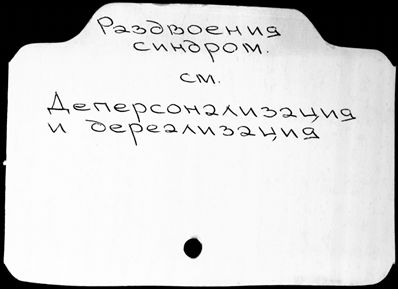 Раздвоения
синдром.
см.
Деперсонализация
и дереализация